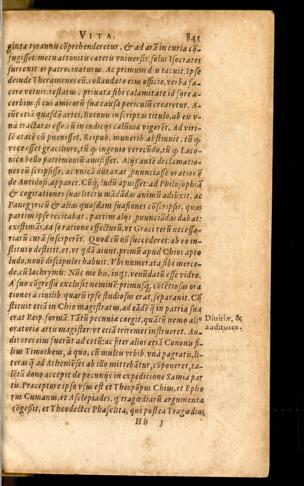 VITA. 841
ginta tyrannis cõprehenderetur, & ad arã in curia cõ-
fugisset: metu attonitis cæteris vniuersis. solus Isocrates
surrexit ei patrocinaturus. Ac primum diu tacuit. Ipse
deinde Theramenes eũ, collaudato eius officio, verba fa-
cere vetuit: testatus, priuata sibi calamitate id fore a-
cerbius: si cui amicorũ sua causa periculũ crearetur. A-
iũt etiã quasdã artes,
næ tractatas esse: cũ in iudicijs calũnia vigeret. Ad viri-
lẽ ætatẽ cũ peruenisset. Reipub. munerib. abstinuit. tũ q̃
voce esset graciliore, tũ q̃ ingenio verecũdo, tũ q̃ Laco-
nico bello patrimoniũ amisisset. Alijs autẽ declamatio-
nes eũ scripsisse, ac vnicã dũtaxat pronũciasse orationẽ
de Antidosi, apparet. Cũq́; ludũ aperuisset: ad Philosophiã
& cogitationes suas literis mãdãdas animũ adiũxit. ac
Panegyricũ & alias quasdam suasiones cõscripsit. quas
partim ipse recitabat, partim alijs pronũciãdas dabat:
existimãs, ea se ratione effecturũ, vt Græci rerũ necessa-
riarũ curã susciperẽt. Quod cũ nõ succederet: ab eo in-
stituto destitit. et, vt qdã aiunt, primũ apud Chios aper-
to ludo, nouẽ discipulos habuit. Vbi numerata sibi merce-
de, cũ lacrymis: Nũc me hîc, inqt, venũdatũ esse video.
A suo cõgressu exclusit neminẽ: primusq́; cõtẽtiosas ora-
tiones a ciuilib. quarũ ipse studiosus erat, separauit. Cõ-
stituit etiã in Chio magistratus, ad eãdẽ q̃ in patria sua
erat Reip. formã. Tãtũ pecuniæ coegit, quãtũ nemo alius
oratoriæ artis magister: vt etiã triremes instrueret. Au-
Diuitiæ, &
auditores.
ditores eius fuerũt ad cẽtũ: ac pter alios etiã Cononis fi-
lius Timotheus, a quo, cũ multis vrbib. vnà pagratis, li-
teras q̃ ad Atheniẽses ab illo mittebãtur, cõponeret, ta-
lẽtũ dono accepit de pecunijs in expeditione Samia par-
tis. Præceptore ipso vsus est et Theopõpus Chius, et Epho-
rus Cumanus, et Asclepiades, q tragœdiarũ argumenta
cõgessit, et Theodectes Phaselita, qui postea Tragœdias
Hh 5